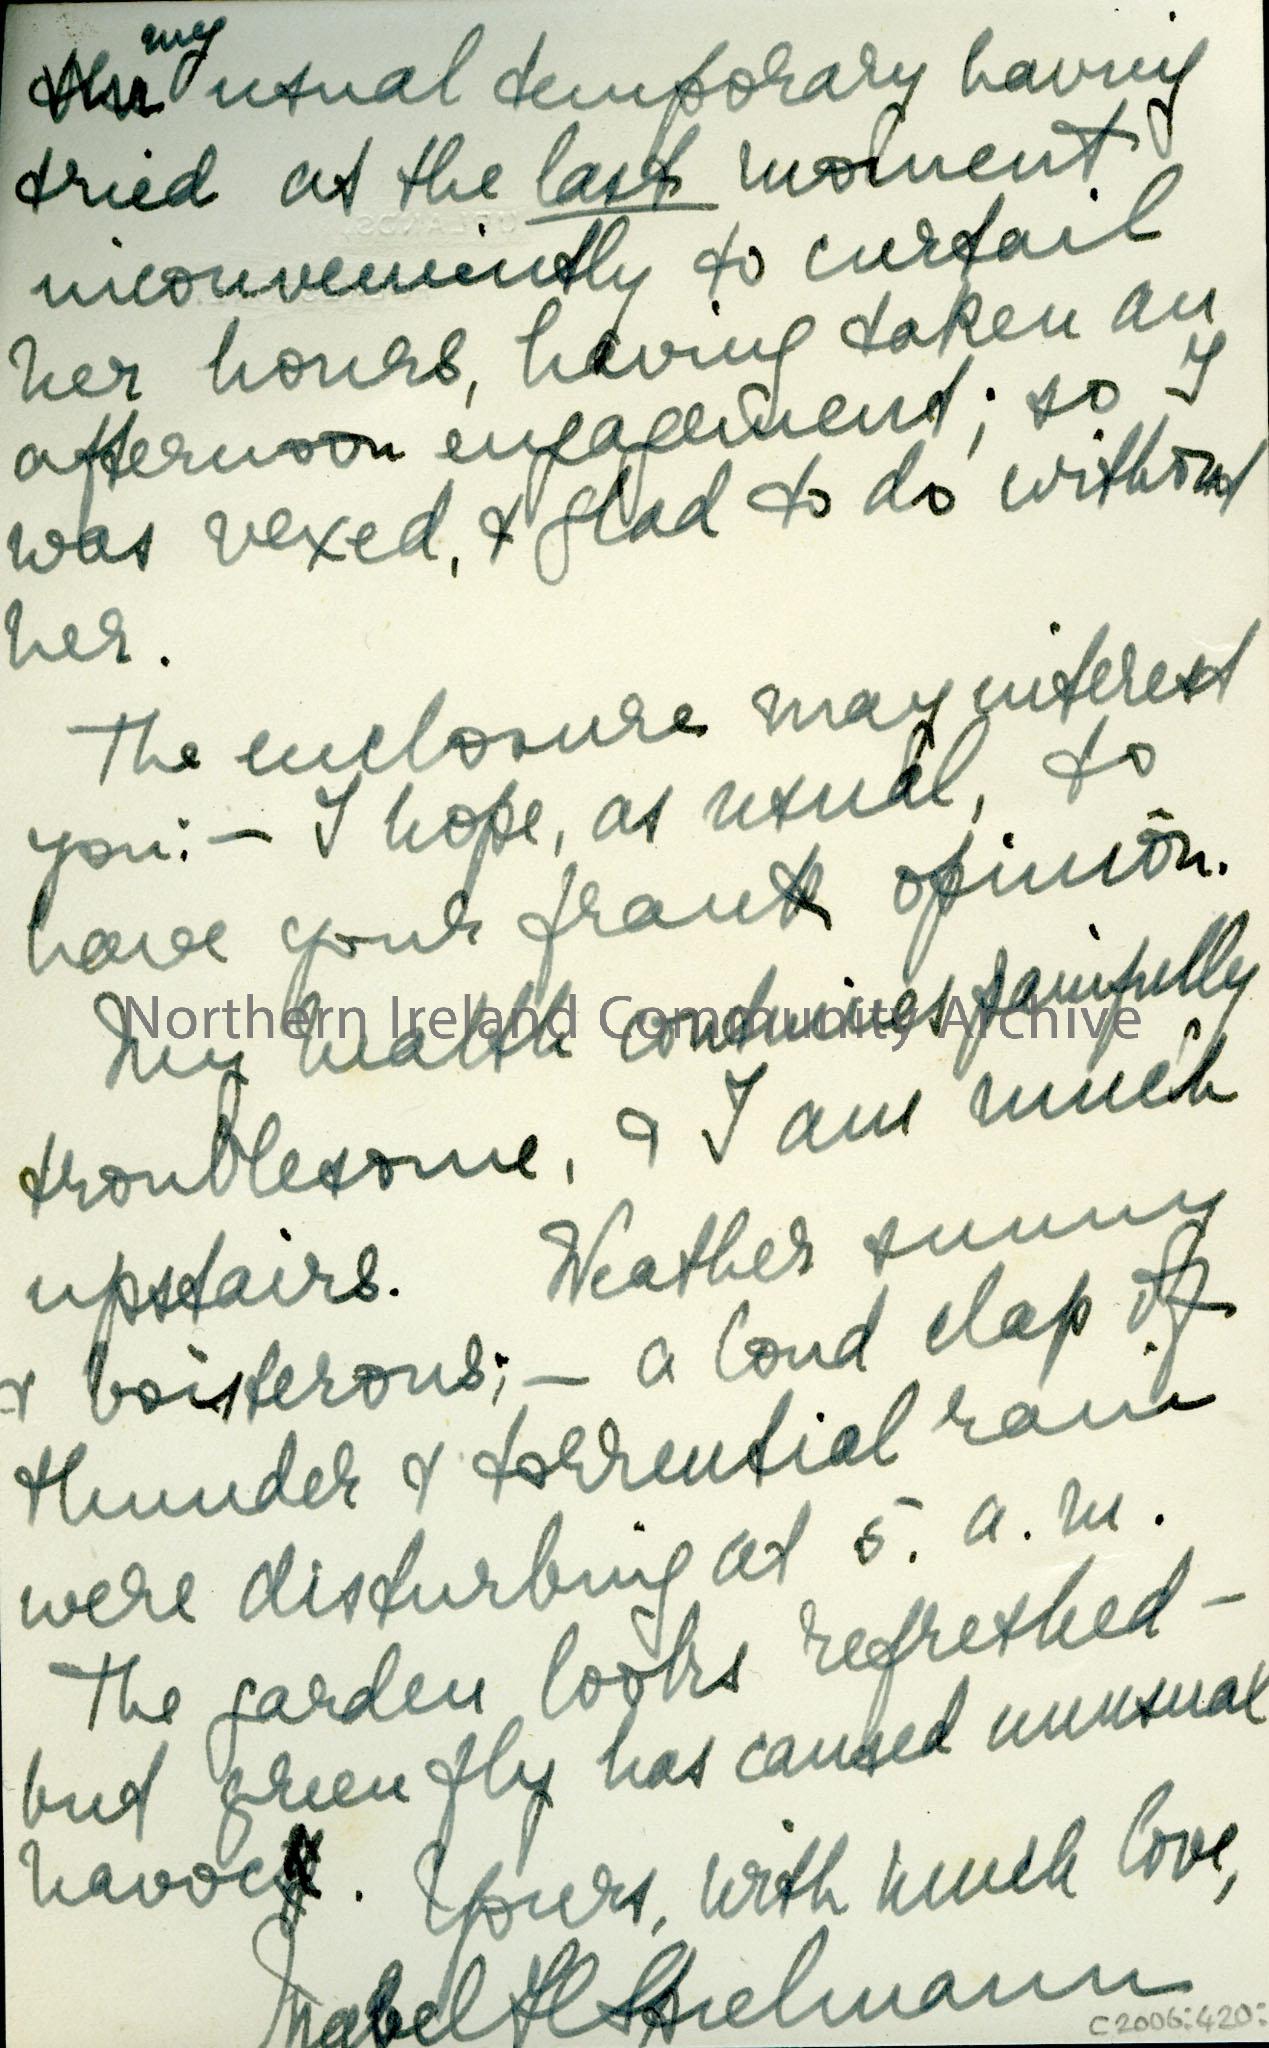 my
usual temporary having
tried at the last moment
inconveniently to curtail
her hours, having taken an
afternoon engagement; so I
was vexed, & glad to do without
her.
The enclosure may interest
you:— I hope, as usual, to
have your frank opinion.
My health continues painfully
Northern Ireland Community Archive
troublesome, & I am much
upstairs. Weather sunny
& boisterous;— a loud clap of
thunder & torrential rain
were disturbing at 5. a.m.
The garden looks refreshed —
but green fly has caused unusual
havoc. Yours, with much love,
Mabel H
C2006:420: